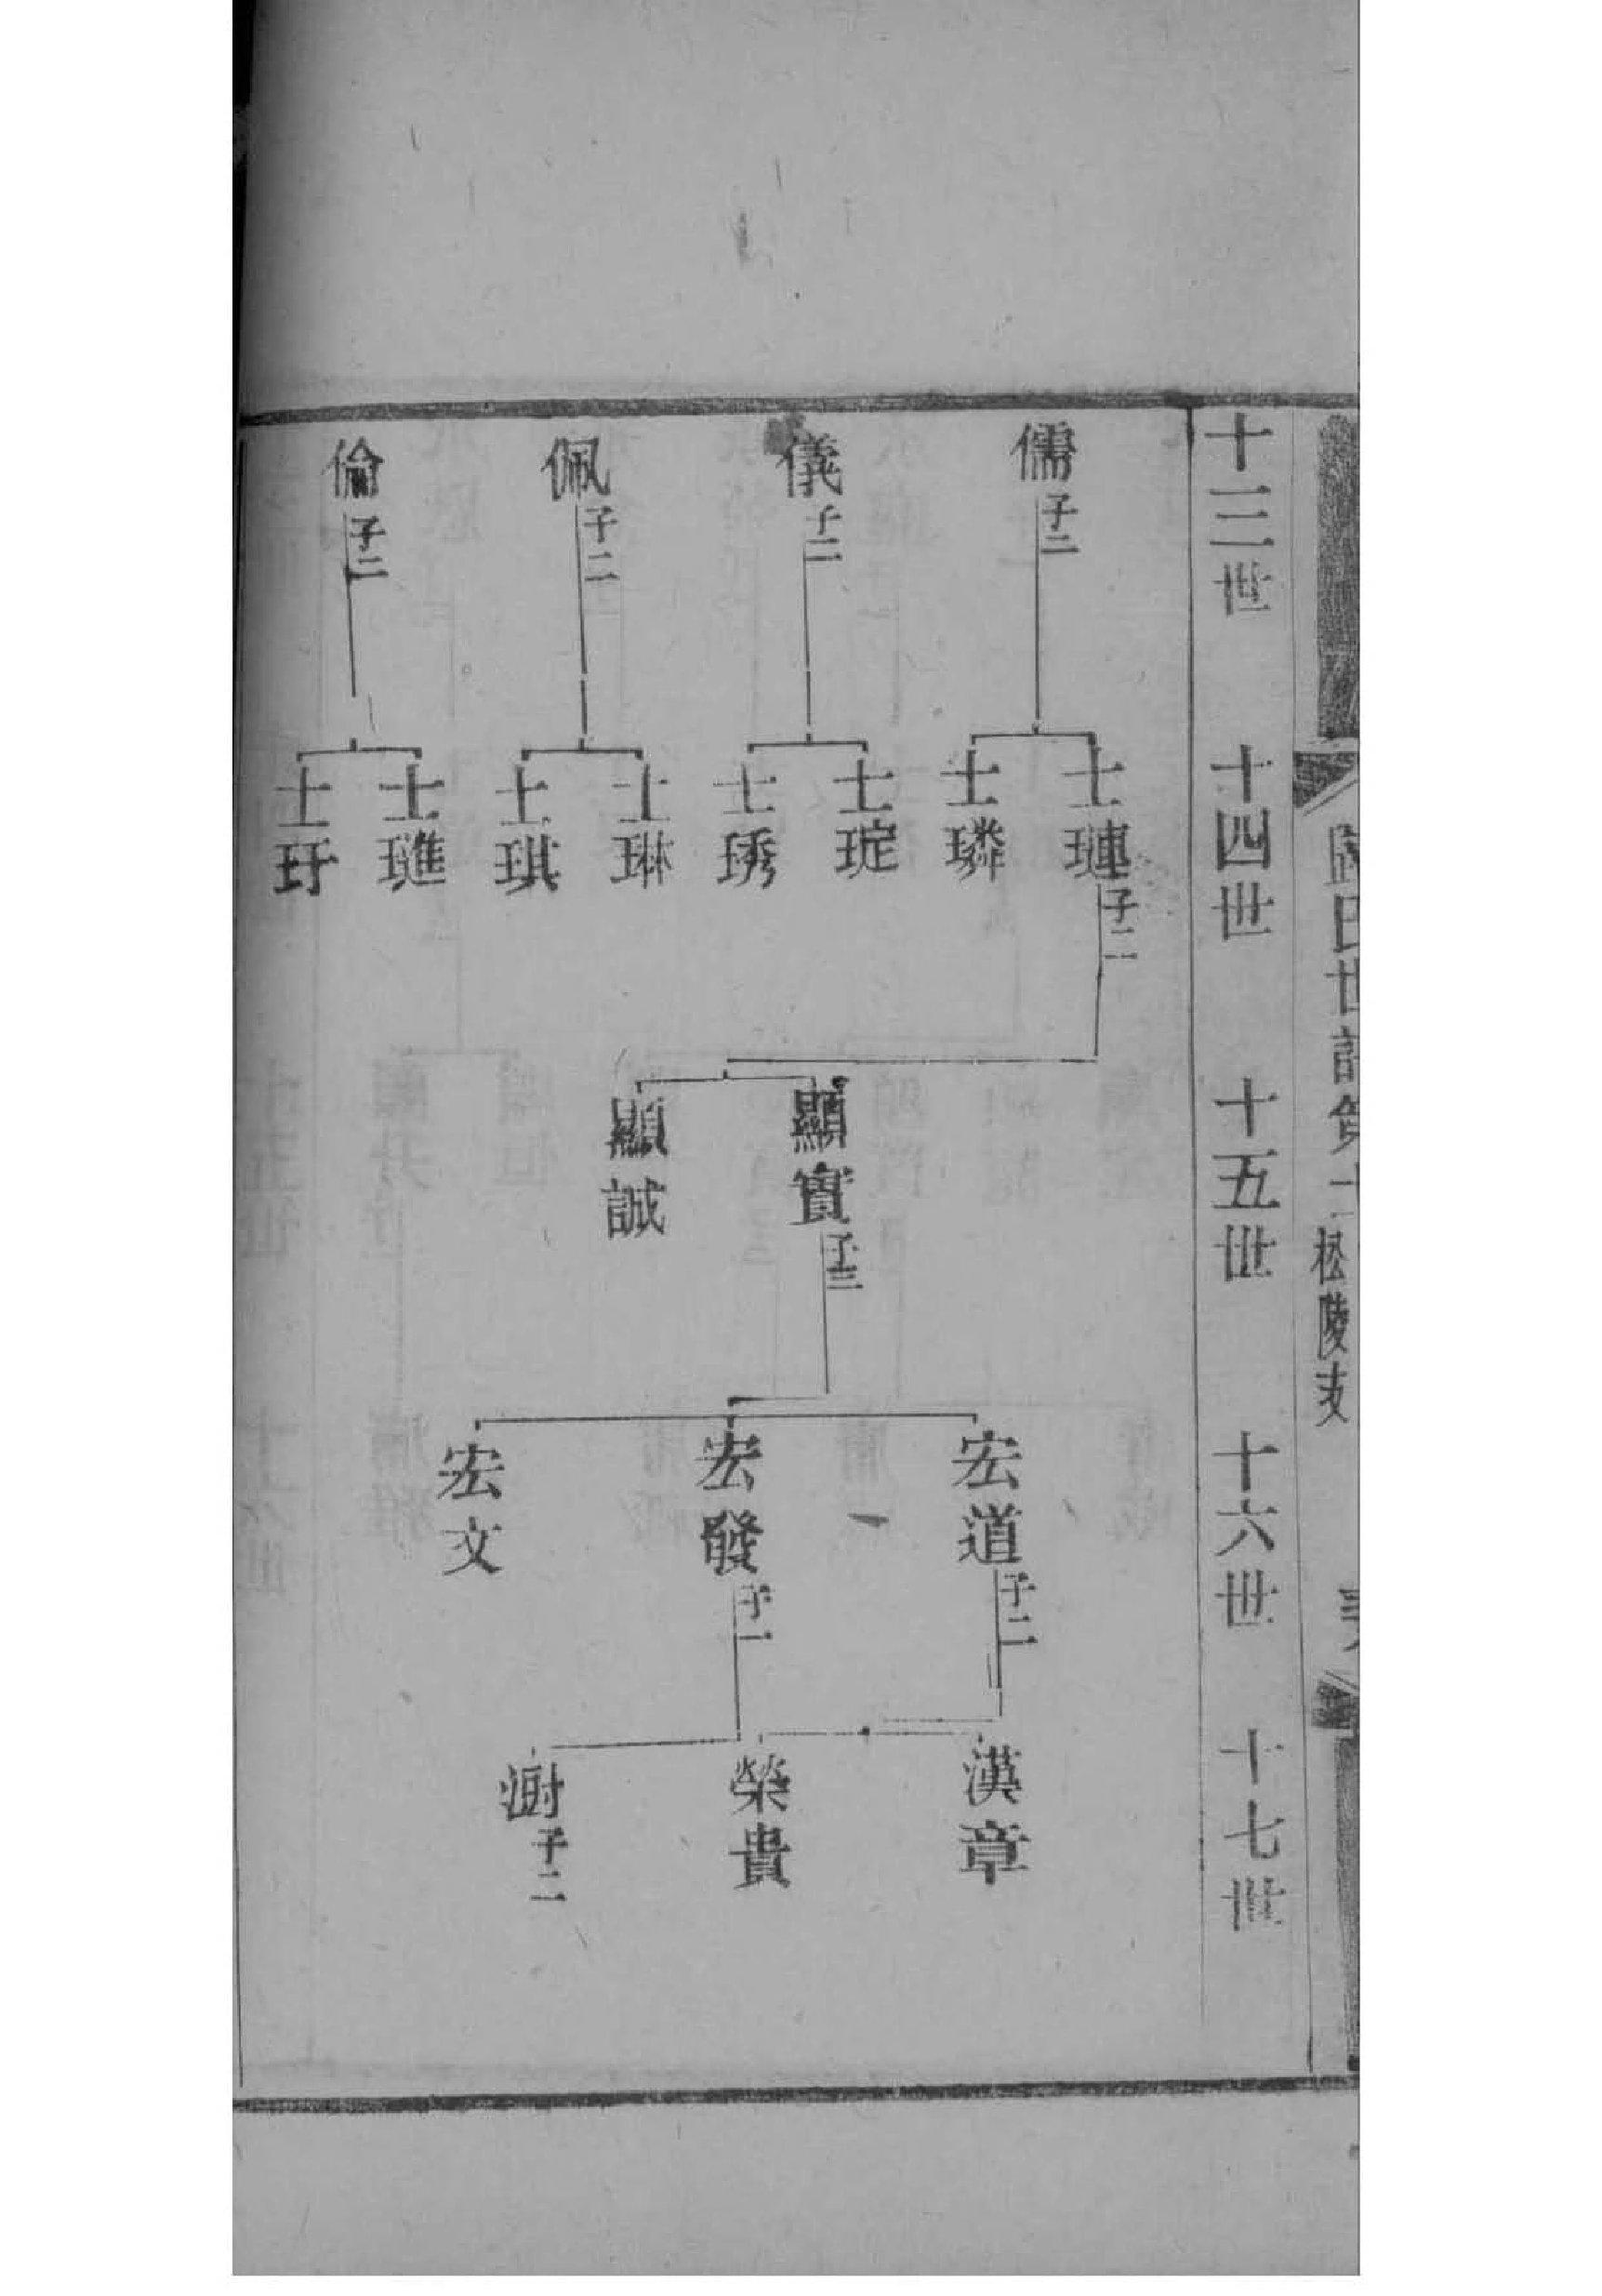 氏世譜
松陵支
十三世
十四世
十五世
十六世
十七世
儒子二
儀子二
佩子二
倫子二
士璉子二
士璘
士琔
士琇
士琳
士琪
士璡
士玗
顯實子三
顯誠
宏道子二
宏發子一
宏文
漢章
榮貴
澍子二